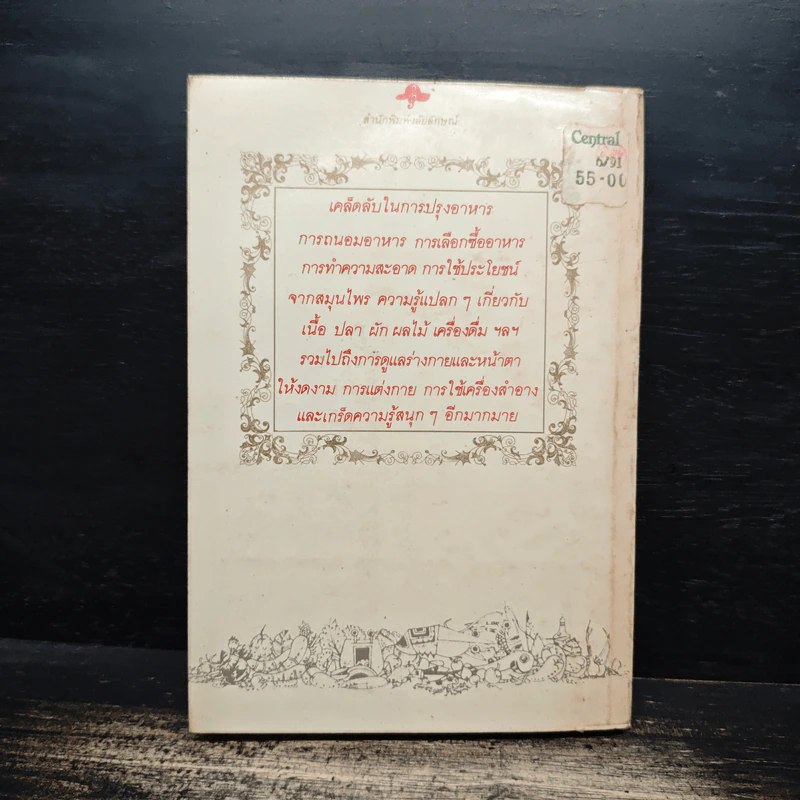 สำนักพิมพ์ต้อยติ่ง
Central
6/91
55-00
เคล็ดลับในการปรุงอาหาร
การถนอมอาหาร การเลือกซื้ออาหาร
การทำความสะอาด การใช้ประโยชน์
จากสมุนไพร ความรู้แปลก ๆ เกี่ยวกับ
เนื้อ ปลา ผัก ผลไม้ เครื่องดื่ม ฯลฯ
รวมไปถึงการดูแลร่างกายและหน้าตา
ให้งดงาม การแต่งกาย การใช้เครื่องสำอาง
และเกร็ดความรู้สนุก ๆ อีกมากมาย